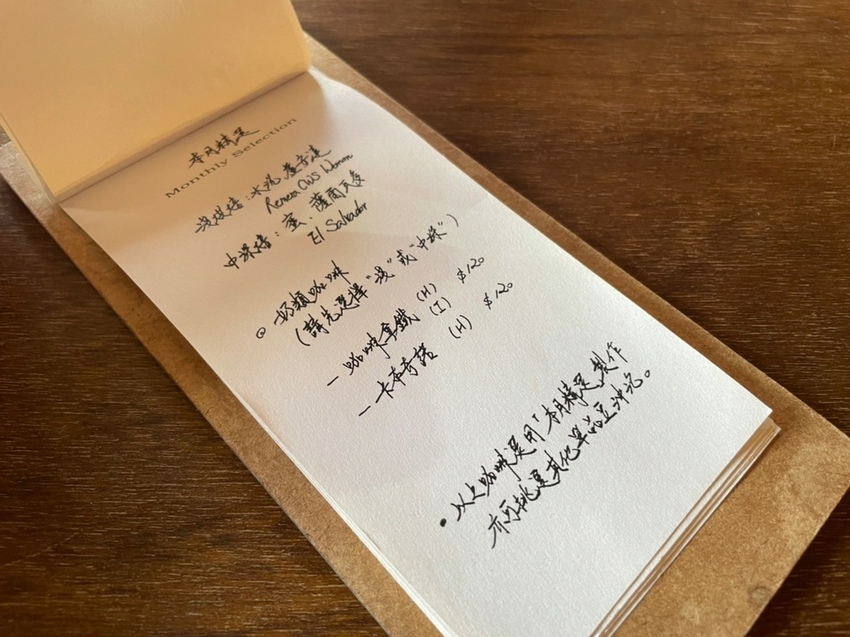 本月精選
Monthly Selection
淺烘焙：水洗
Remera CWS
中深焙：蜜、薩爾瓦多
El Salvador
奶類咖啡
(請先選擇“淺”或“中深”)
- 咖啡拿鐵 (H) (I) $120
- 卡布奇諾 (H) $120
• 以上咖啡選用「本月精選」製作
亦可挑選其他單品豆沖煮。